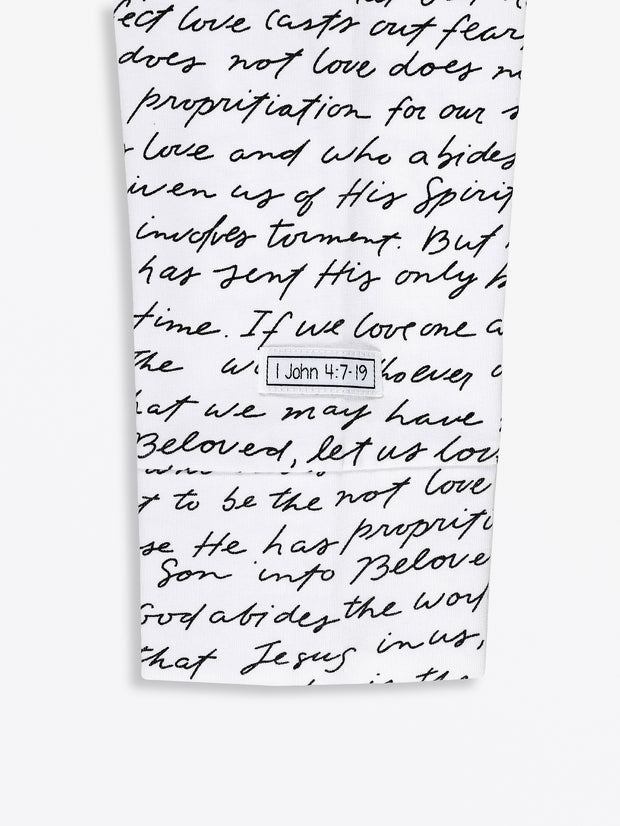 ect love casts out fear,
does not love does n
propritiation for our s
love and who abides
iven us of His Spirit
involves torment. But
has sent His only b
time. If we love one a
the w hoever
1 John 4:7-19
hat we may have
Beloved, let us lov
t to be the not love
se He has propriti
Son into Belove
God abides the worl
that Jesus in us,